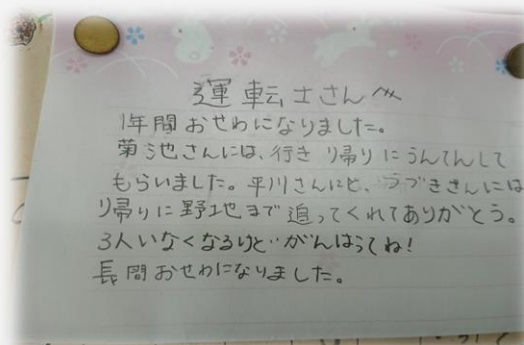 運転士さんへ
1年間おせわになりました。
菊池さんには、行き帰りにうんてんして
もらいました。平川さんにと、うづきさんには
帰りに野地まで追ってくれてありがとう。
3人いなくなるけどがんばってね!
長間おせわになりました。